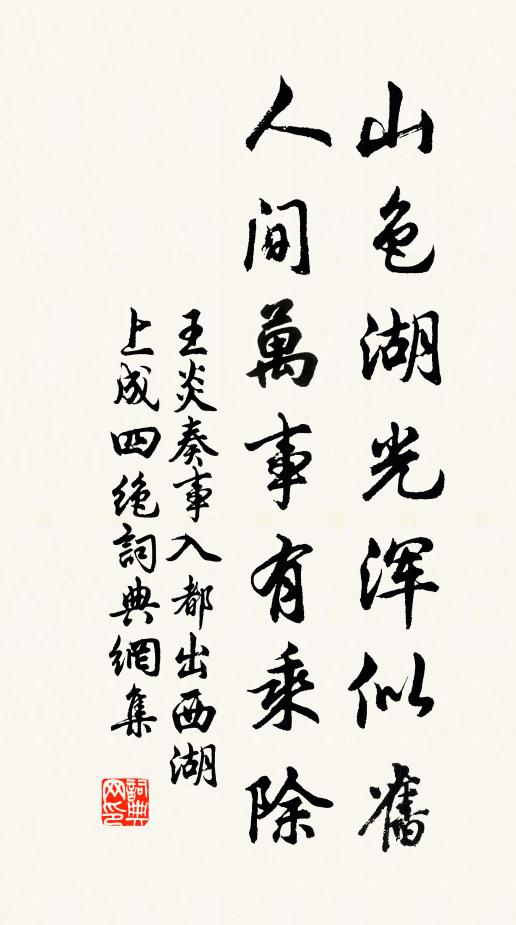 山色湖光浑似舊
人间萬事有乘除
王炎奏事入都出西湖
上成四绝詞典網集
詞典网印